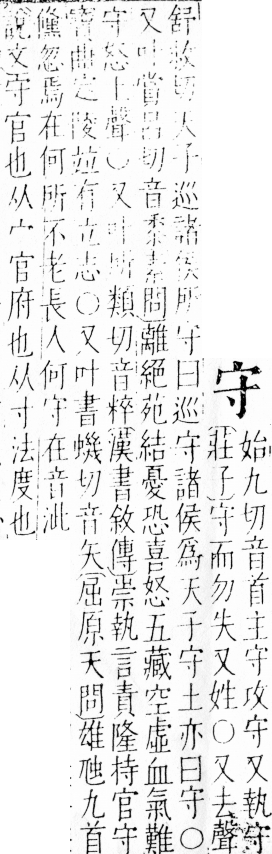 守
始九切音首主守攻守又執守
莊子守而勿失又姓○又去聲
舒救切天子巡諸侯所守曰巡守諸侯爲天子守土亦曰守○
又叶賞呂切音黍素問離絕苑結憂恐喜怒五藏空虛血氣難
守怒上聲○又叶所類切音粹漢書敘傳崇執言責隆持官守
寶曲定陵竝有立志○又叶書蟣切音矢屈原天問雄虺九首
儵忽焉在何所不老長人何守在音泚
說文守官也从宀官府也从寸法度也